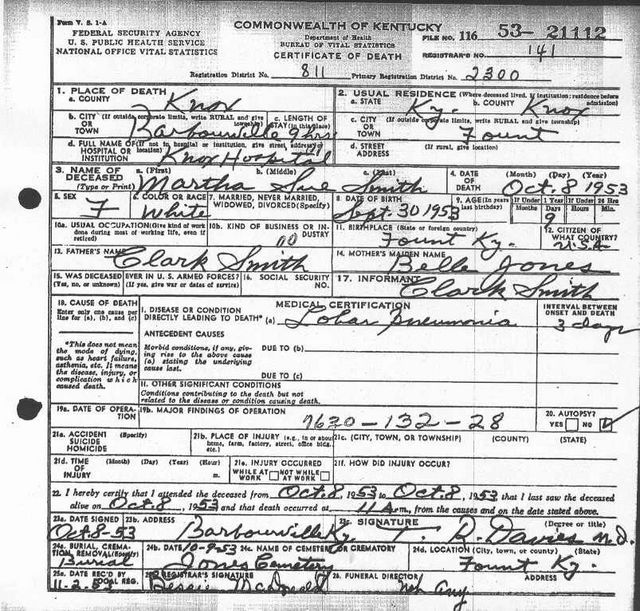 Form V. S. 1-A
FEDERAL SECURITY AGENCY
U. S. PUBLIC HEALTH SERVICE
NATIONAL OFFICE VITAL STATISTICS
COMMONWEALTH OF KENTUCKY
Department of Health
BUREAU OF VITAL STATISTICS
CERTIFICATE OF DEATH
FILE NO. 116 53-21112
REGISTRAR'S NO. 141
Registration District No. 811 Primary Registration District No. 2300
1. PLACE OF DEATH
a. COUNTY Knox
2. USUAL RESIDENCE (Where deceased lived, if institution: residence before admission)
a. STATE Ky. b. COUNTY Knox
b. CITY (If outside corporate limits, write RURAL and give township) OR TOWN Barbourville
c. LENGTH OF STAY (in this place) 9 hrs
c. CITY (If outside corporate limits, write RURAL and give township) OR TOWN Fount
d. FULL NAME OF (If not in hospital or institution, give street address) HOSPITAL OR INSTITUTION Knox Hospital
d. STREET ADDRESS (If rural, give location)
3. NAME OF DECEASED (Type or Print) a. (First) b. (Middle) c. (Last)
Martha Sue Smith
4. DATE OF DEATH (Month) (Day) (Year) Oct. 8 1953
5. SEX F
6. COLOR OR RACE White
7. MARRIED, NEVER MARRIED, WIDOWED, DIVORCED (Specify)
8. DATE OF BIRTH Sept. 30 1953
9. AGE (In years last birthday) If Under 1 Year Months Days 9 If Under 24 Hrs. Hours Min.
10a. USUAL OCCUPATION (Give kind of work done during most of working life, even if retired)
10b. KIND OF BUSINESS OR INDUSTRY
11. BIRTHPLACE (State or foreign country) Fount Ky.
12. CITIZEN OF WHAT COUNTRY? U.S.A
13. FATHER'S NAME Clark Smith
14. MOTHER'S MAIDEN NAME Belle Jones
15. WAS DECEASED EVER IN U. S. ARMED FORCES? (Yes, no, or unknown) (If yes, give war or dates of service)
16. SOCIAL SECURITY NO.
17. INFORMANT Clark Smith
18. CAUSE OF DEATH
Enter only one cause per line for (a), (b), and (c)
*This does not mean the mode of dying, such as heart failure, asthenia, etc. It means the disease, injury, or complication which caused death.
MEDICAL CERTIFICATION
INTERVAL BETWEEN ONSET AND DEATH
I. DISEASE OR CONDITION DIRECTLY LEADING TO DEATH* (a) Lobar Pneumonia 3 days
ANTECEDENT CAUSES
Morbid conditions, if any, giving rise to the above cause (a) stating the underlying cause last.
DUE TO (b)
DUE TO (c)
II. OTHER SIGNIFICANT CONDITIONS
Conditions contributing to the death but not related to the disease or condition causing death.
19a. DATE OF OPERATION
19b. MAJOR FINDINGS OF OPERATION
7630-132-28
20. AUTOPSY?
YES NO
21a. ACCIDENT SUICIDE HOMICIDE (Specify)
21b. PLACE OF INJURY (e.g., in or about home, farm, factory, street, office bldg., etc.)
21c. (CITY, TOWN, OR TOWNSHIP) (COUNTY) (STATE)
21d. TIME OF INJURY (Month) (Day) (Year) (Hour)
21e. INJURY OCCURRED
WHILE AT WORK NOT WHILE AT WORK
21f. HOW DID INJURY OCCUR?
22. I hereby certify that I attended the deceased from Oct. 8, 1953 to Oct. 8, 1953 that I last saw the deceased
alive on Oct. 8, 1953 and that death occurred at m., from the causes and on the date stated above.
23a. DATE SIGNED Oct. 8-53
23b. ADDRESS Barbourville Ky.
23c. SIGNATURE T. R. Davies M.D. (Degree or title)
24a. BURIAL, CREMATION, REMOVAL (Specify) Burial
24b. DATE 10-9-53
24c. NAME OF CEMETERY OR CREMATORY Jones Cemetery
24d. LOCATION (City, town, or county) (State) Fount Ky.
25a. DATE REC'D BY LOCAL REG. 11-2-53
25b. REGISTRAR'S SIGNATURE Bessie McDonald
26. FUNERAL DIRECTOR ADDRESS